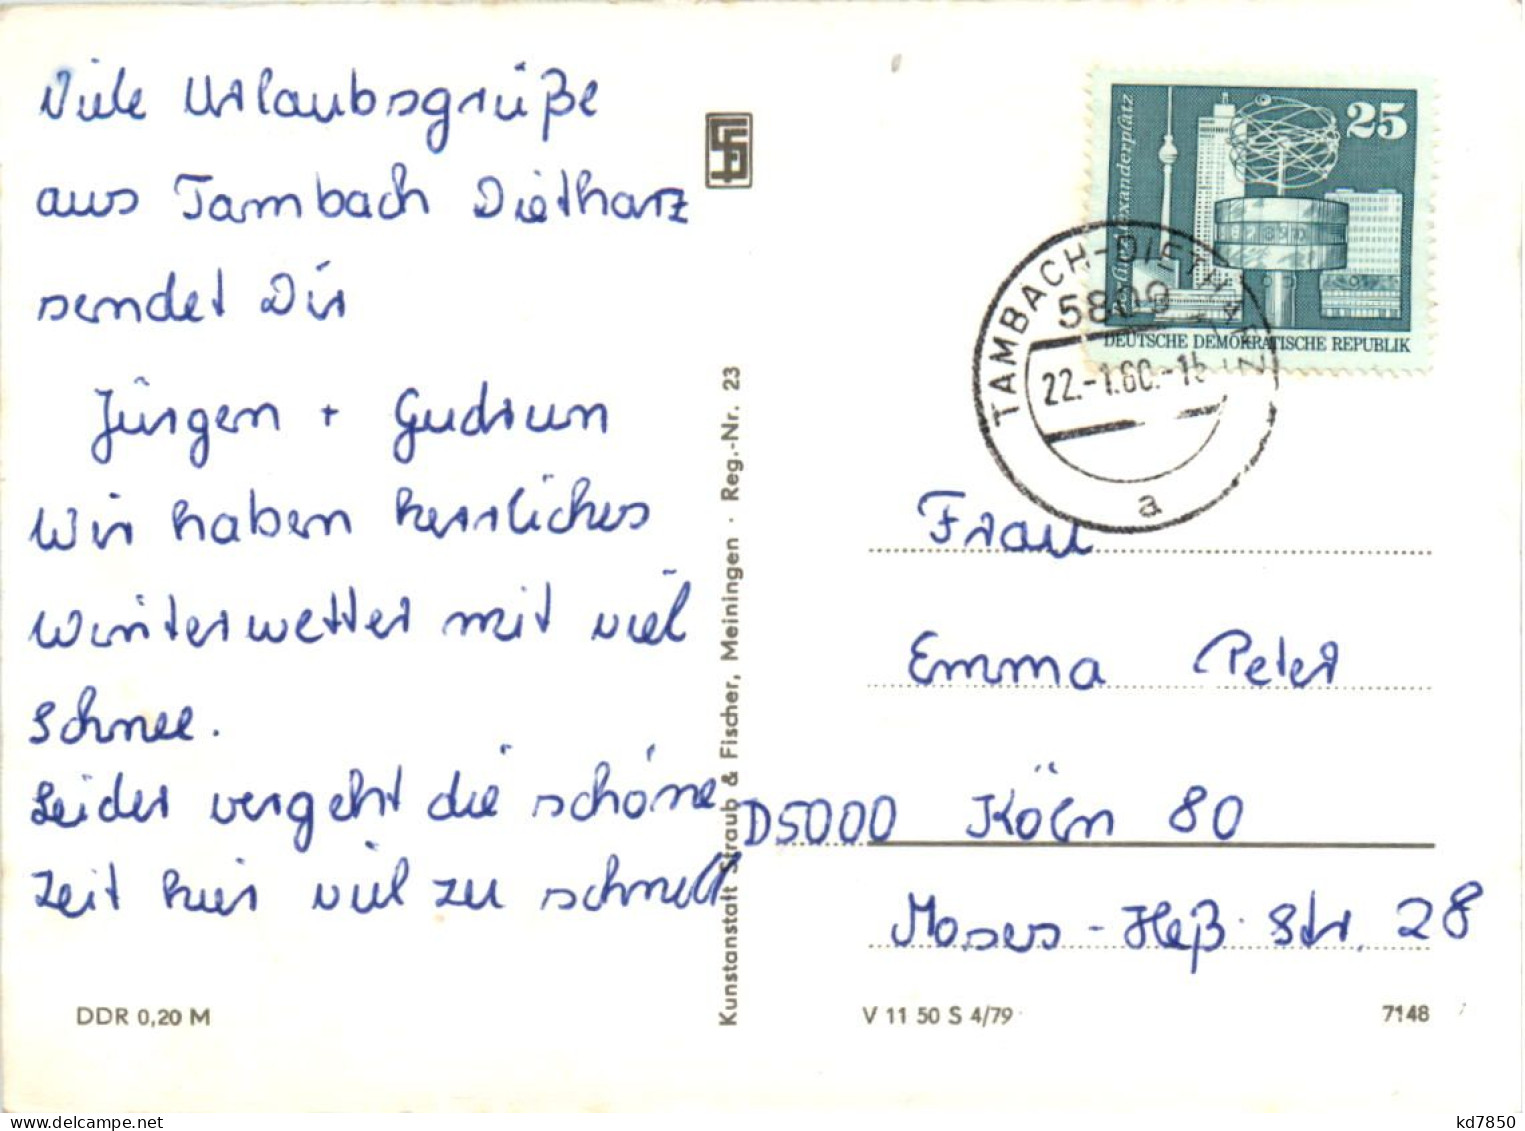 Viele Urlaubsgrüße
aus Tambach Dietharz
sendet Dir
Jürgen + Gudrun
Wir haben herrliches
Winterwetter mit viel
Schnee.
Leider vergeht die schöne
Zeit hier viel zu schnell
DDR 0,20 M
Kunstanstalt Straub & Fischer, Meiningen · Reg.-Nr. 23
25
Berlin-Alexanderplatz
DEUTSCHE DEMOKRATISCHE REPUBLIK
TAMBACH-DIETHARZ
5809
22.-1.80.-15
a
Frau
Emma Peter
D5000 Köln 80
Moses-Heß-Str. 28
V 11 50 S 4/79
7148
kd7850